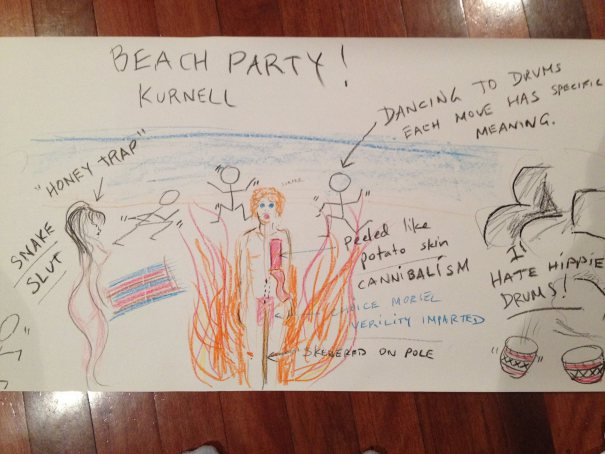 BEACH PARTY!
KURNELL
DANCING TO DRUMS
EACH MOVE HAS SPECIFIC
MEANING.
"HONEY TRAP"
SNAKE
SLUT
Peeled like
potato skin
CANNIBALISM
CHOICE MORIEL
VERILITY IMPARTED
SKEKERED ON POLE
I
HATE HIPPIE
DRUMS!